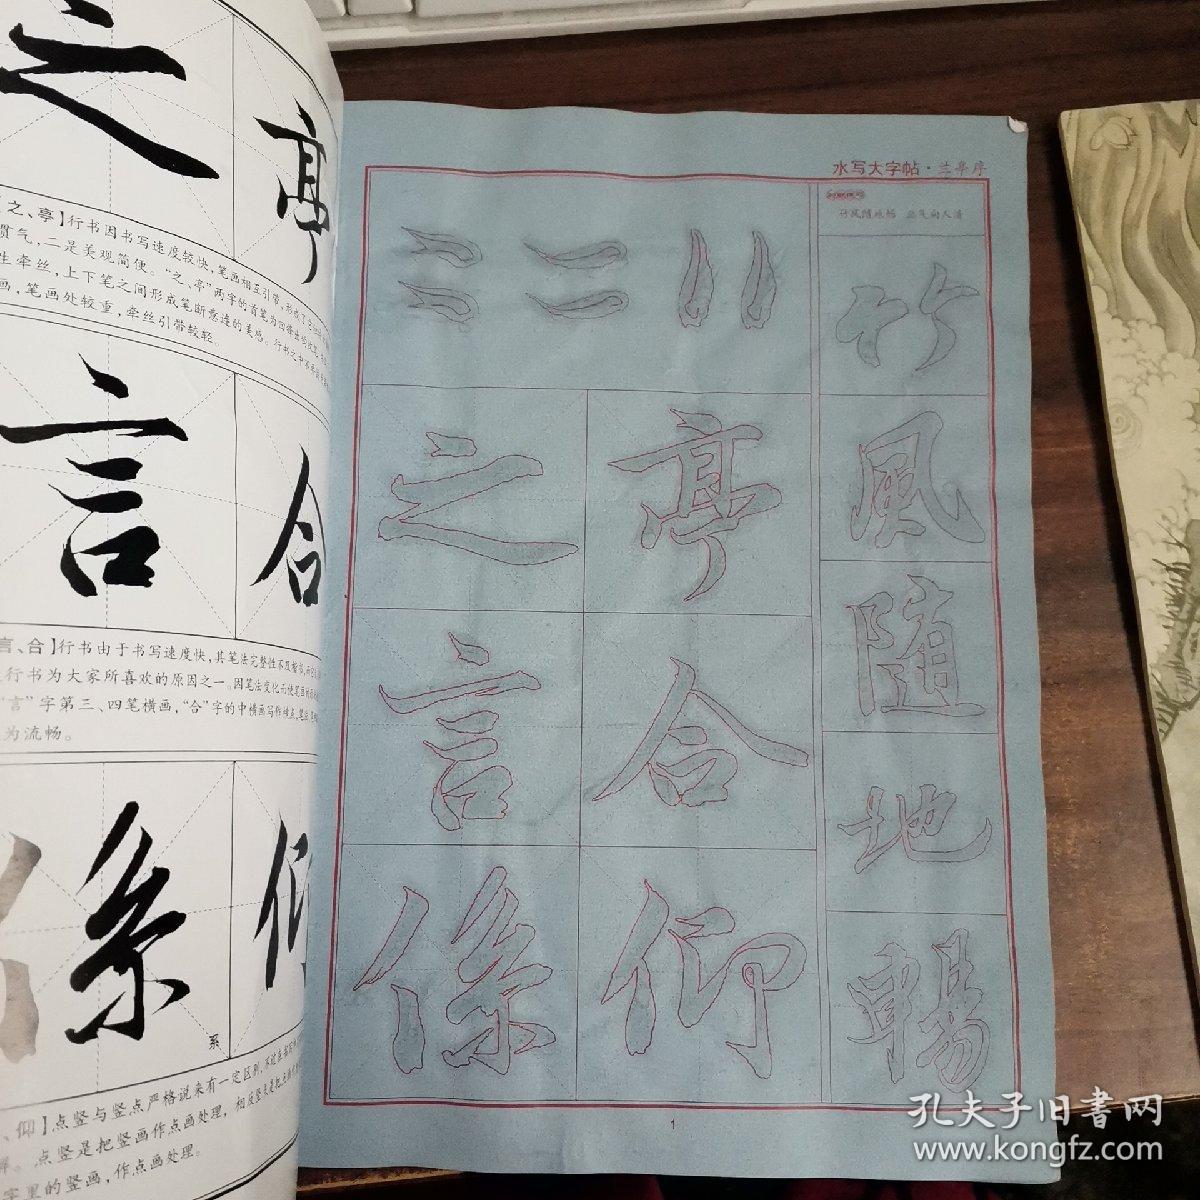 之
亭
之、亭】行书因书写速度较快，笔画相互引带，形成
贯气，二是美观简便。“之、亭”两字的首笔为
生牵丝，上下笔之间形成笔断意连的美感。行书之中
画，笔画处较重，牵丝引带较轻。
言
合
言、合】行书由于书写速度快，其笔法完整性不及楷书，
行书为大家所喜欢的原因之一。因笔法变化而使笔画
“言”字第三、四笔横画，“合”字的中横画写作
为流畅。
係
系
仰
、仰】点竖与竖点严格说来有一定区别，不过
点竖是把竖画作点画处理，相反竖点是把
字里的竖画，作点画处理。
水写大字帖·兰亭序
竹风随地畅
之 亭
言 合
係 仰
竹
風
随
地
暢
1
孔夫子旧书网
www.kongfz.com